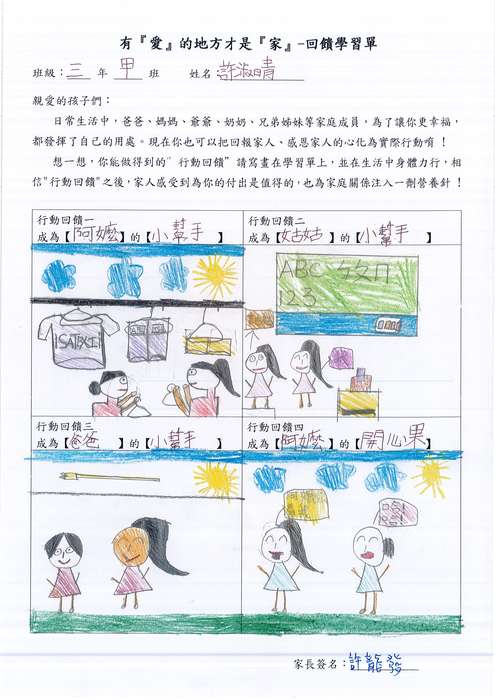 有『愛』的地方才是『家』-回饋學習單
班級：三 年 甲 班 姓名：許淑晴
親愛的孩子們：
日常生活中，爸爸、媽媽、爺爺、奶奶、兄弟姊妹等家庭成員，為了讓你更幸福，
都發揮了自己的用處。現在你也可以把回報家人、感恩家人的心化為實際行動唷！
想一想，你能做得到的"行動回饋"請寫畫在學習單上，並在生活中身體力行，相
信"行動回饋"之後，家人感受到為你的付出是值得的，也為家庭關係注入一劑營養針！
行動回饋一
成為【阿嬤】的【小幫手】
行動回饋二
成為【姑姑】的【小幫手】
ABC ㄅㄆㄇ
123
行動回饋三
成為【爸爸】的【小幫手】
行動回饋四
成為【阿嬤】的【開心果】
家長簽名：許龍發